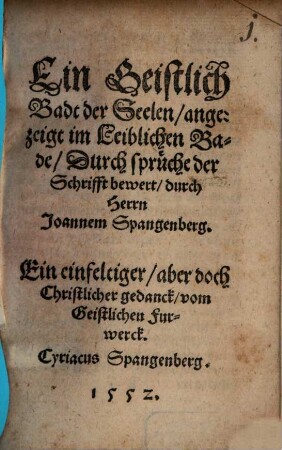 1.
Ein Geistlich
Badt der Seelen/ange⸗
zeigt im Leiblichen Ba⸗
de/Durch sprüche der
Schrifft bewert/durch
Herrn
Joannem Spangenberg.
Ein einfeltiger/aber doch
Christlicher gedanck/vom
Geistlichen Fur⸗
werck.
Cyriacus Spangenberg.
1552.